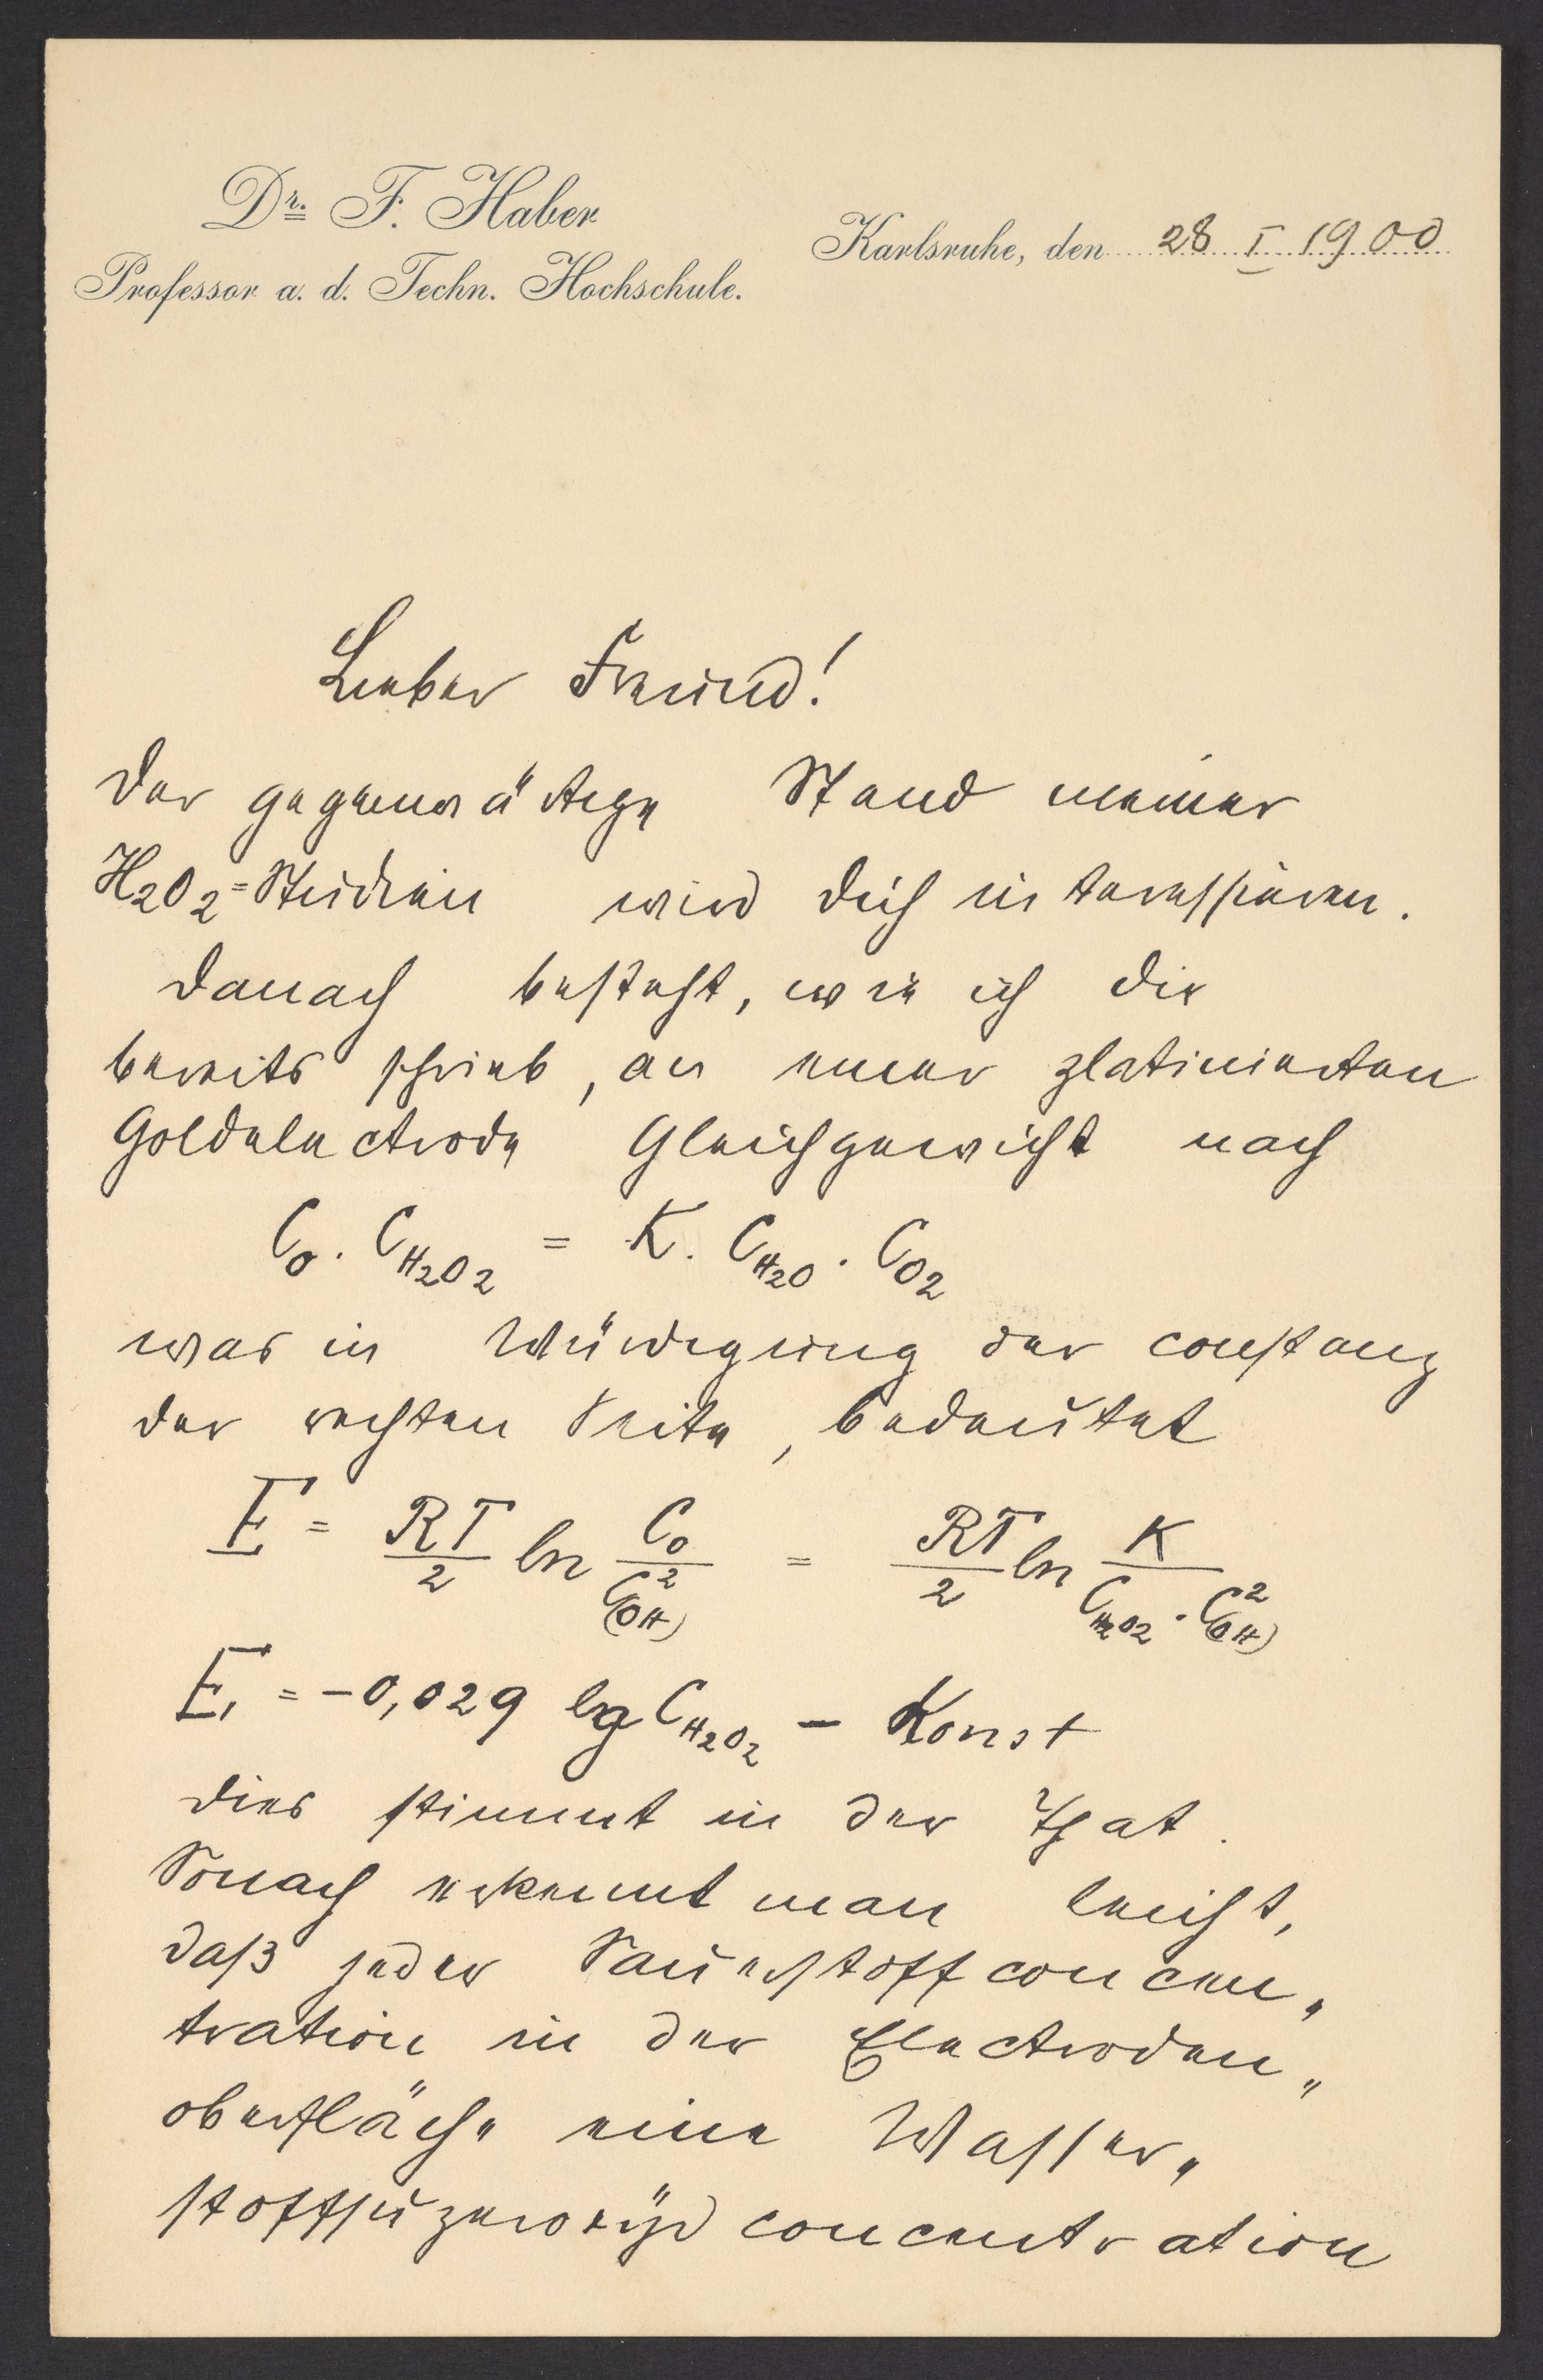 Dr. F. Haber
Professor a. d. Techn. Hochschule.
Karlsruhe, den 28 I 1900
Lieber Freund!
Der gegenwärtige Stand meiner
H2O2=Studien wird dich interessieren.
Danach besteht, wie ich dir
bereits schrieb, an einer platinierten
Goldelectrode Gleichgewicht nach
C_O . C_H2O2 = K. C_H2O . C_O2
was in Würdigung der constanz
der rechten Seite, bedeutet
E = RT/2 ln C_O/C²_(OH) = RT/2 ln K/C_H2O2 . C²_(OH)
E, = -0,029 lg C_H2O2 - Konst
dies stimmt in der That.
Sonach erkennt man leicht,
daß jeder Sauerstoffconcen„
tration in der Electroden„
oberfläche eine Wasser„
stoffsuperoxÿd concentration